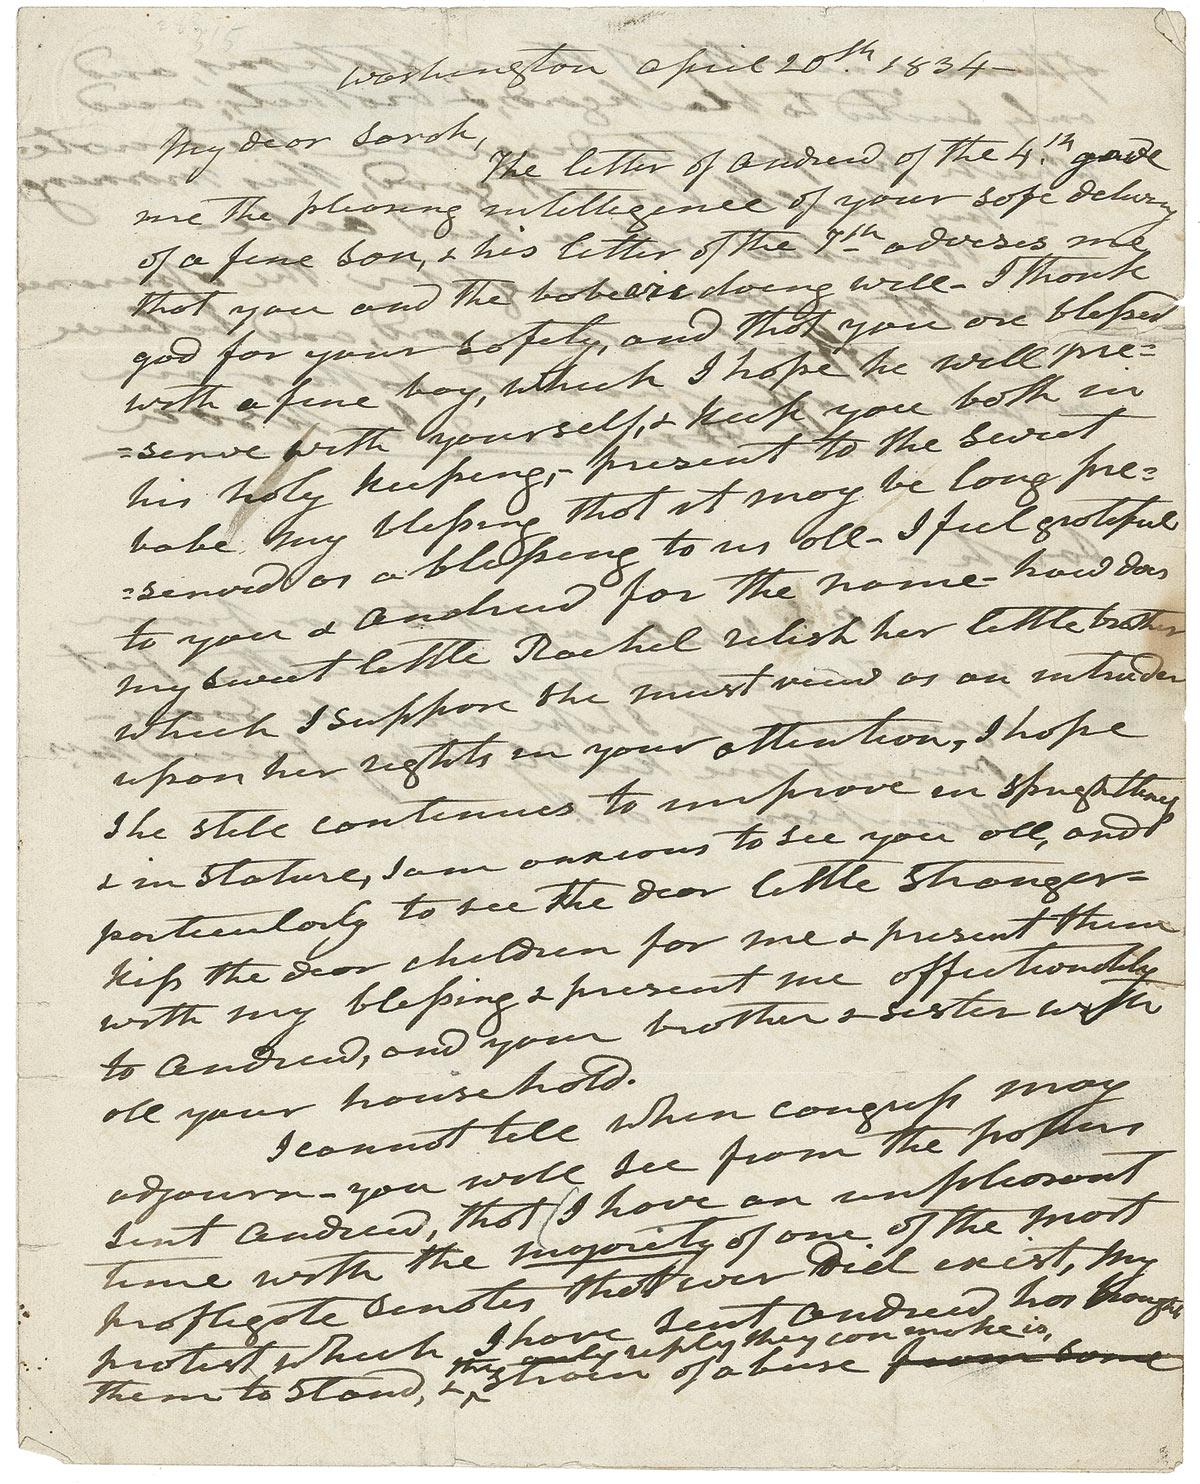 Washington April 20th. 1834—
My dear Sarah,
The letter of Andrew of the 4.th gave
me the pleasing intelligence of your safe delivery
of a fine son, & his letter of the 7th advises me
that you and the babe are doing well— I thank
god for your safety, and that you are blessed
with a fine boy, which I hope he will pre=
=serve with yourself, & keep you both in
his holy keeping,— present to the sweet
babe my blessing that it may be long pre=
=served as a blessing to us all— I feel grateful
to you & Andrew for the name— how does
my sweet little Rachel relish her little brother
which I suppose she must view as an intruder
upon her rights in your attention, I hope
she still continues to improve in sprightliness
& in stature, I am anxious to see you all, and
particularly to see the dear little stranger—
kiss the dear children for me & present them
with my blessing & present me affectionately
to Andrew, and your brother & sister with
all your household.
I cannot tell when congress may
adjourn— you will see from the papers
sent Andrew, that (I have an unpleasant
time with the majority of one of the most
profligate senates that ever did exist, my
protest which I have sent Andrew has brought
them to stand, & the only reply they can make is,
strain of abuse from some